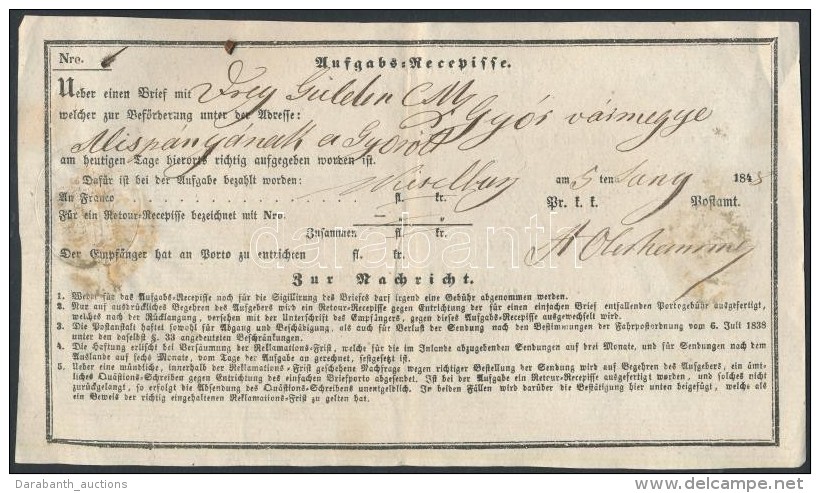 Nro. 6
Aufgabs-Recepisse.
Ueber einen Brief mit Drey Gulden CM
welcher zur Beförderung unter der Adresse: Győr vármegye
Alispánjának a Győrött
am heutigen Tage hierorts richtig aufgegeben worden ist.
Dafür ist bei der Aufgabe bezahlt worden: Wieselburg am 5 ten Jany 1848
An Franco . . . . . . . . . . . . . . . . fl. kr. Pr. k. k. Postamt.
Für ein Retour-Recepisse bezeichnet mit Nro. — „ „
Zusammen fl. kr.
Der Empfänger hat an Porto zu entrichten fl. kr.
Zur Nachricht.
1. Weder für das Aufgabs-Recepisse noch für die Sigillirung des Briefes darf irgend eine Gebühr abgenommen werden.
2. Nur auf ausdrückliches Begehren des Aufgebers wird ein Retour-Recepisse gegen Entrichtung der für einen einfachen Brief entfallenden Portogebühr ausgefertigt,
welches nach der Rücklangung, versehen mit der Unterschrift des Empfängers, gegen dieses Aufgabs-Recepisse ausgewechselt wird.
3. Die Postanstalt haftet sowohl für Abgang und Beschädigung, als auch für Verlust der Sendung nach den Bestimmungen der Fahrpostordnung vom 6. Juli 1838
unter den daselbst §. 33 angedeuteten Beschränkungen.
4. Die Haftung erlischt bei Versäumung der Reklamations-Frist, welche für die im Inlande abzugebenden Sendungen auf drei Monate, und für Sendungen nach dem
Auslande auf sechs Monate, vom Tage der Aufgabe an gerechnet, festgesetzt ist.
5. Ueber eine mündliche, innerhalb der Reklamations-Frist geschehene Nachfrage wegen richtiger Bestellung der Sendung wird auf Begehren des Aufgebers, ein ämt-
liches Quästions-Schreiben gegen Entrichtung des einfachen Briefporto abgesendet. Ist bei der Aufgabe ein Retour-Recepisse ausgefertigt worden, und solches nicht
zurückgelangt, so erfolgt die Absendung des Quästions-Schreibens unentgeldlich. In beiden Fällen wird darüber die Bestätigung hier unten beigefügt, welche als
ein Beweis der richtig eingehaltenen Reklamations-Frist zu gelten hat.
darabanth
Darabanth_auctions
www.delcampe.net